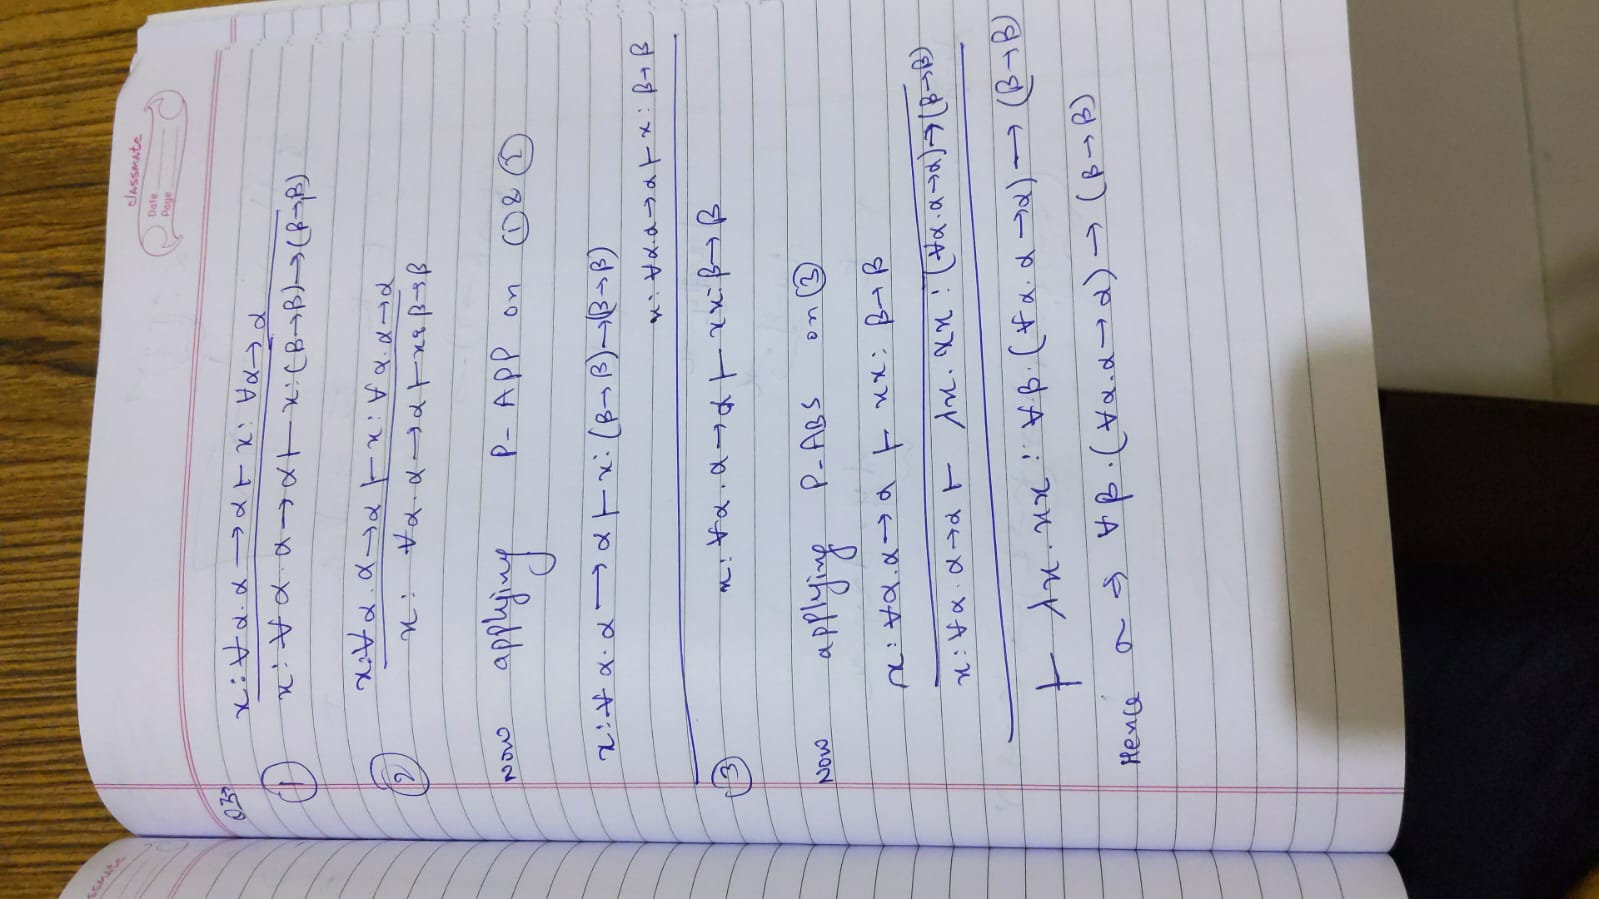 classmate
Date
Page
Q3→
x : ∀ α. α → α ⊢ x : ∀α → α
① x : ∀ α. α → α ⊢ x : (β→β) → (β→β)
x : ∀ α. α → α ⊢ x : ∀ α. α → α
② x : ∀α. α → α ⊢ x : β→β
Now applying P-APP on ① & ②
x : ∀ α. α → α ⊢ x : (β→β) → (β→β)
x : ∀α.α → α ⊢ x : β→β
③ x : ∀α. α → α ⊢ xx : β → β
Now applying P-ABS on ③
x : ∀α.α → α ⊢ xx : β→β
x : ∀α. α→α ⊢ λx. xx : (∀α.α→α) → (β→β)
⊢ λx. xx : ∀β. (∀α. α → α) → (β → β)
Hence σ ⇒ ∀β. (∀α.α → α) → (β → β)